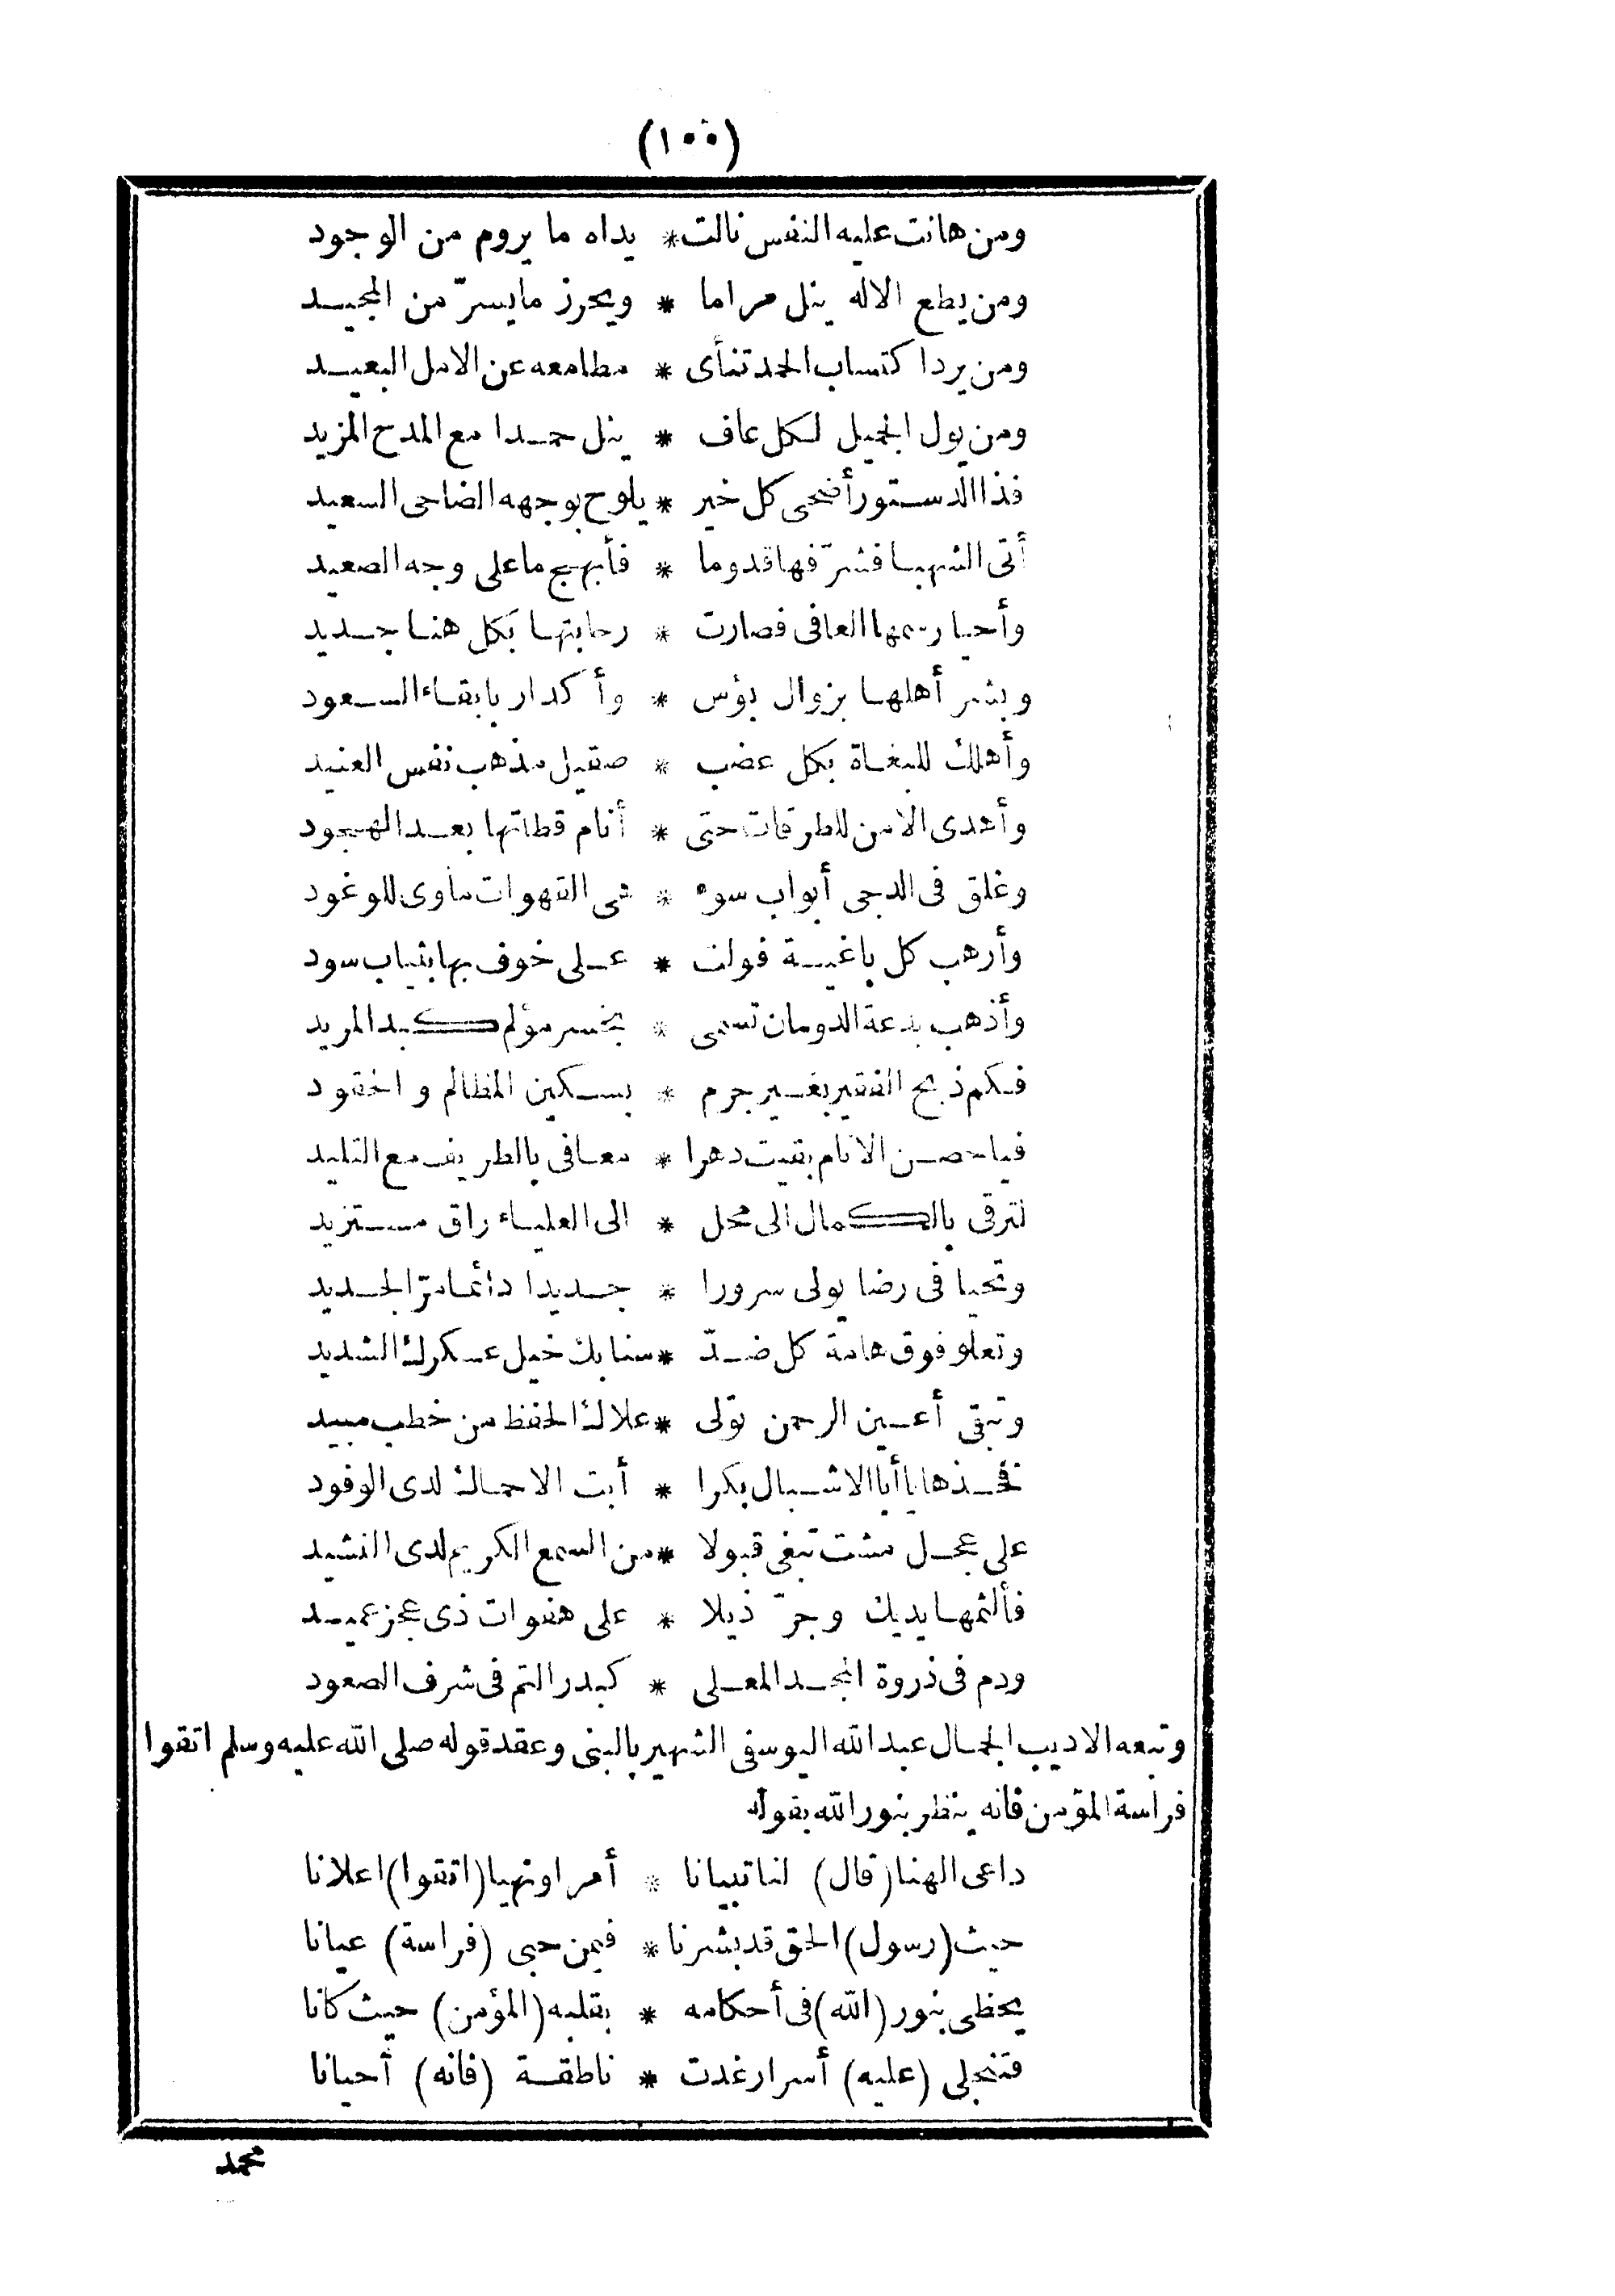 (١٠٠)
ومن هانت عليه النفس نالت * يداه ما يروم من الوجود
ومن يطع الاله ينل مراما * ويحرز ما يسرّ من المجيد
ومن يرد اكتساب الحمد تنأى * مطامعه عن الامل البعيد
ومن يول الجميل لكل عاف * ينل حمدا مع المدح المزيد
فذا الدستور أضحى كل خير * يلوح بوجهه الضاحى السعيد
أتى الشهبا فشرّفها قدوما * فأبهج ما على وجه الصعيد
وأحيا رسمها العافى فصارت * رحابتها بكل هنا جديد
وبشر أهلها بزوال بؤس * وأكدار بابقاء السعود
وأهلك للبغاة بكل عضب * صقيل مذهب نفس العنيد
وأهدى الامن للطرقات حتى * أنام قطاتها بعد الهجود
وغلق فى الدجى أبواب سوء * هى القهوات مأوى للوغود
وأرهب كل باغية فولت * على خوف بها بثياب سود
وأذهب بدعة الدومان تسمى * بخسر مؤلم كبد المريد
فكم ذبح الفقير بغير جرم * بسكين المظالم والحقود
فيا حصن الانام بقيت دهرا * معافى بالطريف مع التليد
لترقى بالكمال الى محل * الى العلياء راق مستزيد
وتحيا فى رضا يولى سرورا * جديدا دائما مرّ الجديد
وتعلو فوق هامة كل ضدّ * سنابك خيل عسكرك الشديد
وتبقى أعين الرحمن تولى * علاك الحفظ من خطب مبيد
فخذها يا أبا الاشبال بكرا * أبت الا حماك لدى الوفود
على عجل مشت تبغى قبولا * من السمع الكريم لدى النشيد
فألثمها يديك وجرّ ذيلا * على هفوات ذى عجز عميد
ودم فى ذروة المجد المعلى * كبدر التم فى شرف الصعود
وتبعه الاديب الجمال عبد الله اليوسفى الشهير بالبنى وعقد قوله صلى الله عليه وسلم اتقوا
فراسة المؤمن فانه ينظر بنور الله بقوله
داعى الهنا (قال) لنا تبيانا * أمرا ونهيا (اتقوا) اعلانا
حيث (رسول) الحق قد بشرنا * فيمن حبى (فراسة) عيانا
يحظى بنور (الله) فى أحكامه * بقلبه (المؤمن) حيث كانا
فتنجلى (عليه) أسرار غدت * ناطقة (فانه) أحيانا
محمد